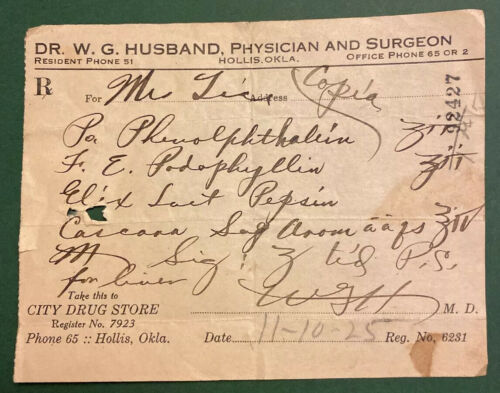 DR. W. G. HUSBAND, PHYSICIAN AND SURGEON
RESIDENT PHONE 51 HOLLIS, OKLA. OFFICE PHONE 65 OR 2
R For Mr Address Copia
92427
Po Phenolphthalein
F. E. Podophyllin
Elix Lact Pepsin
Cascara Sag Arom āā qs
M Sig: tid P.C.
for liver
Take this to
CITY DRUG STORE WGH M. D.
Register No. 7923
Phone 65 :: Hollis, Okla. Date 11-10-25 Reg. No. 6231